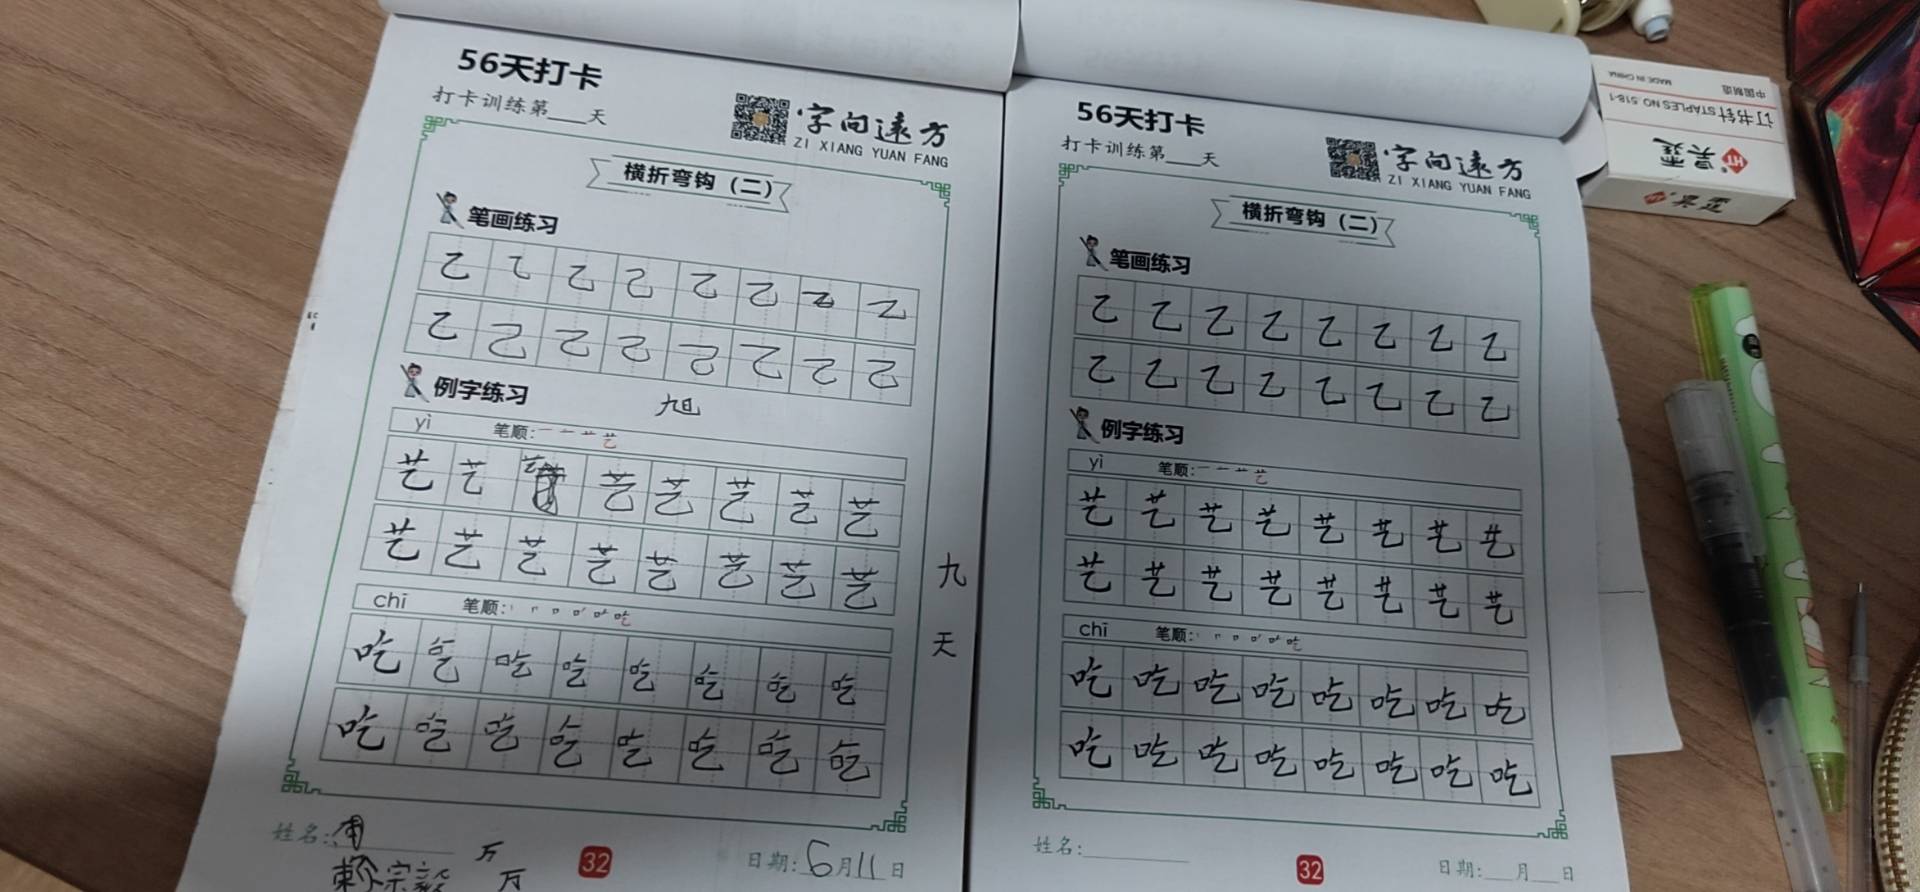 56天打卡
打卡训练第___天
字向远方
ZI XIANG YUAN FANG
横折弯钩（二）
笔画练习
㇈ ㇈ ㇈ ㇈ ㇈ ㇈ ㇈ ㇈
㇈ ㇈ ㇈ ㇈ ㇈ ㇈ ㇈ ㇈
例字练习
旭
yì 笔顺：一 艹 艺
艺 艺 艺 艺 艺 艺 艺
艺 艺 艺 艺 艺 艺 艺 艺
九
chī 笔顺：丨 口 吃
天
吃 吃 吃 吃 吃 吃 吃 吃
吃 吃 吃 吃 吃 吃 吃 吃
姓名：
万
宗
万
32
日期：6月11日
56天打卡
打卡训练第___天
字向远方
ZI XIANG YUAN FANG
横折弯钩（二）
笔画练习
㇈ ㇈ ㇈ ㇈ ㇈ ㇈ ㇈ ㇈
㇈ ㇈ ㇈ ㇈ ㇈ ㇈ ㇈ ㇈
例字练习
yì 笔顺：一 艹 艺
艺 艺 艺 艺 艺 艺 艺 艺
艺 艺 艺 艺 艺 艺 艺 艺
chī 笔顺：丨 口 吃
吃 吃 吃 吃 吃 吃 吃 吃
吃 吃 吃 吃 吃 吃 吃 吃
姓名：
32
日期：___月___日
中国制造
MADE IN CHINA
订书针 STAPLES NO.518-1